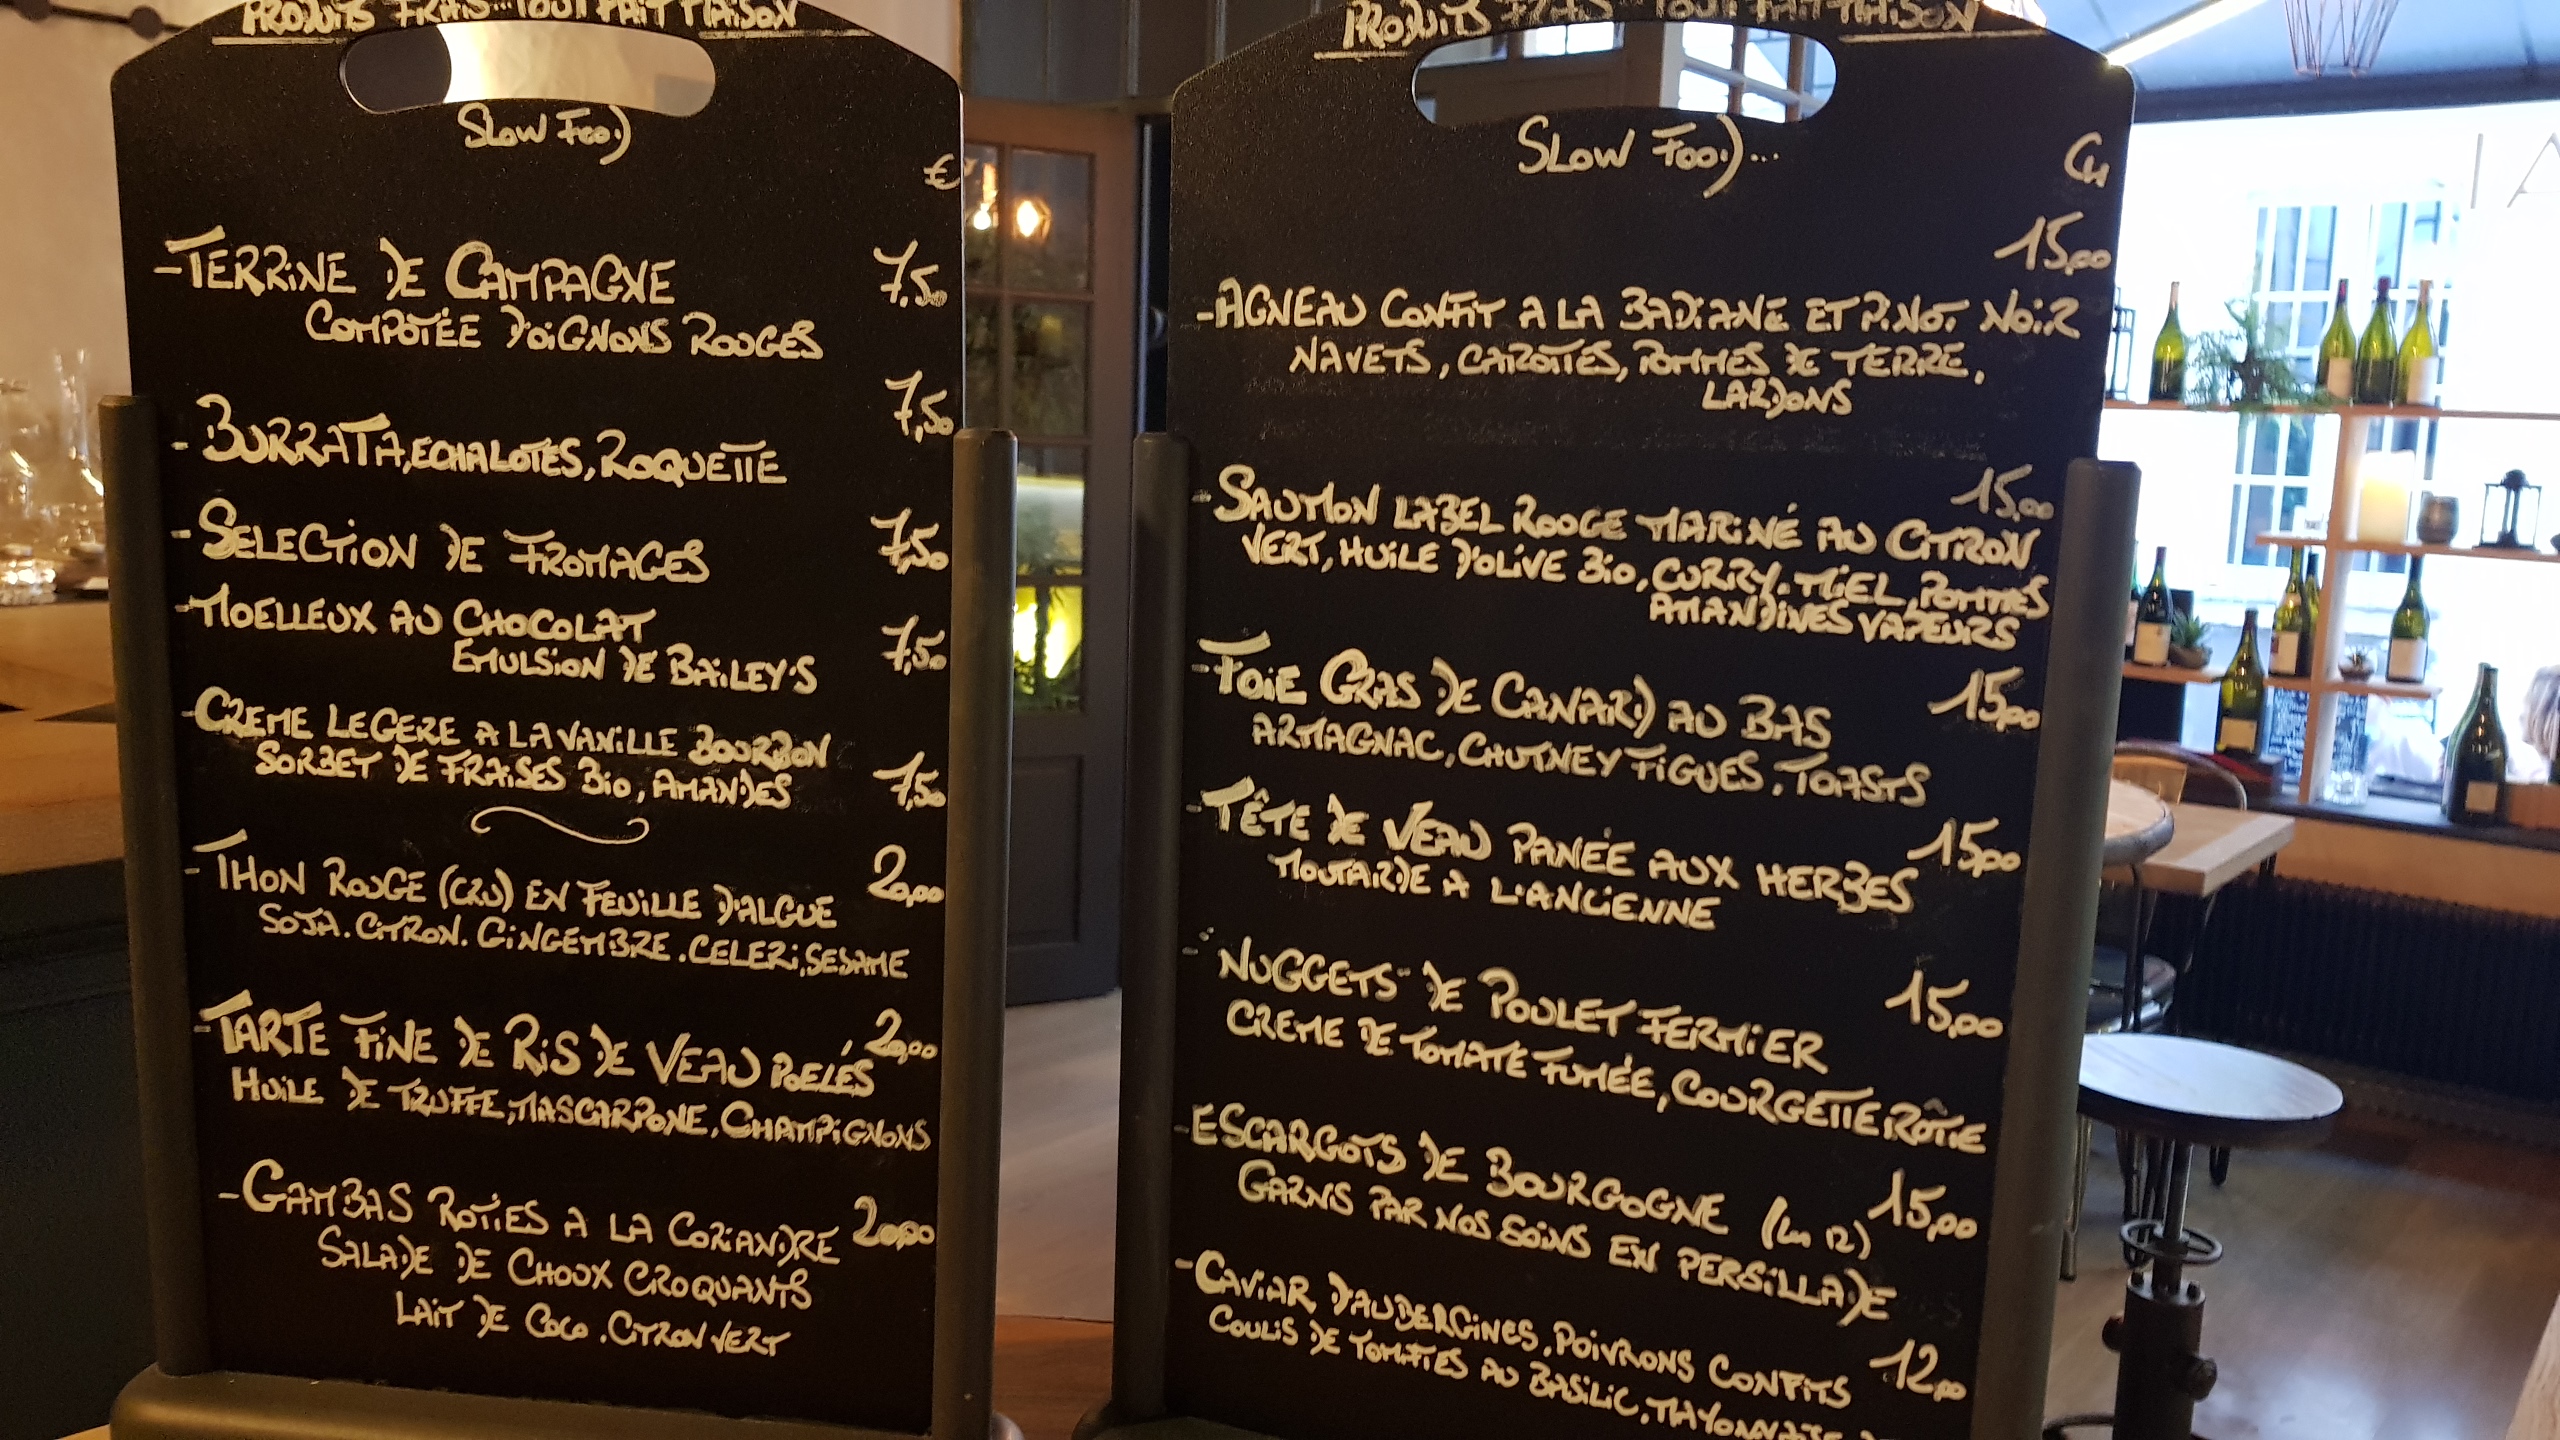 PRODUITS FRAIS... TOUT FAIT MAISON
SLOW FOOD
€
-TERRINE DE CAMPAGNE 7,50
COMPOTÉE D'OIGNONS ROUGES
- BURRATA, ECHALOTES, ROQUETTE 7,50
- SELECTION DE FROMAGES 7,50
- MOELLEUX AU CHOCOLAT
EMULSION DE BAILEY'S 7,50
- CREME LEGERE A LA VANILLE BOURBON
SORBET DE FRAISES BIO, AMANDES 7,50
- THON ROUGE (CRU) EN FEUILLE D'ALGUE 20,00
SOJA. CITRON. GINGEMBRE. CELERI, SESAME
- TARTE FINE DE RIS DE VEAU POELÉS, 20,00
HUILE DE TRUFFE, MASCARPONE, CHAMPIGNONS
- GAMBAS ROTIES A LA CORIANDRE 20,00
SALADE DE CHOUX CROQUANTS
LAIT DE COCO. CITRON VERT
PRODUITS FRAIS... TOUT FAIT MAISON
SLOW FOOD...
15,00
- AGNEAU CONFIT A LA BADIANE ET PINOT NOIR
NAVETS, CAROTTES, POMMES DE TERRE,
LARDONS
15,00
- SAUMON LABEL ROUGE MARINÉ AU CITRON
VERT, HUILE D'OLIVE BIO, CURRY. MIEL, POMMES
AMANDINES VAPEURS
- FOIE GRAS DE CANARD AU BAS 15,00
ARMAGNAC, CHUTNEY FIGUES, TOASTS
- TÊTE DE VEAU PANÉE AUX HERBES 15,00
MOUTARDE A L'ANCIENNE
- "NUGGETS" DE POULET FERMIER 15,00
CREME DE TOMATE FUMÉE, COURGETTE RÔTIE
- ESCARGOTS DE BOURGOGNE (les 12) 15,00
GARNIS PAR NOS SOINS EN PERSILLADE
- CAVIAR D'AUBERGINES, POIVRONS CONFITS 12,00
COULIS DE TOMATES AU BASILIC, MAYONNAISE